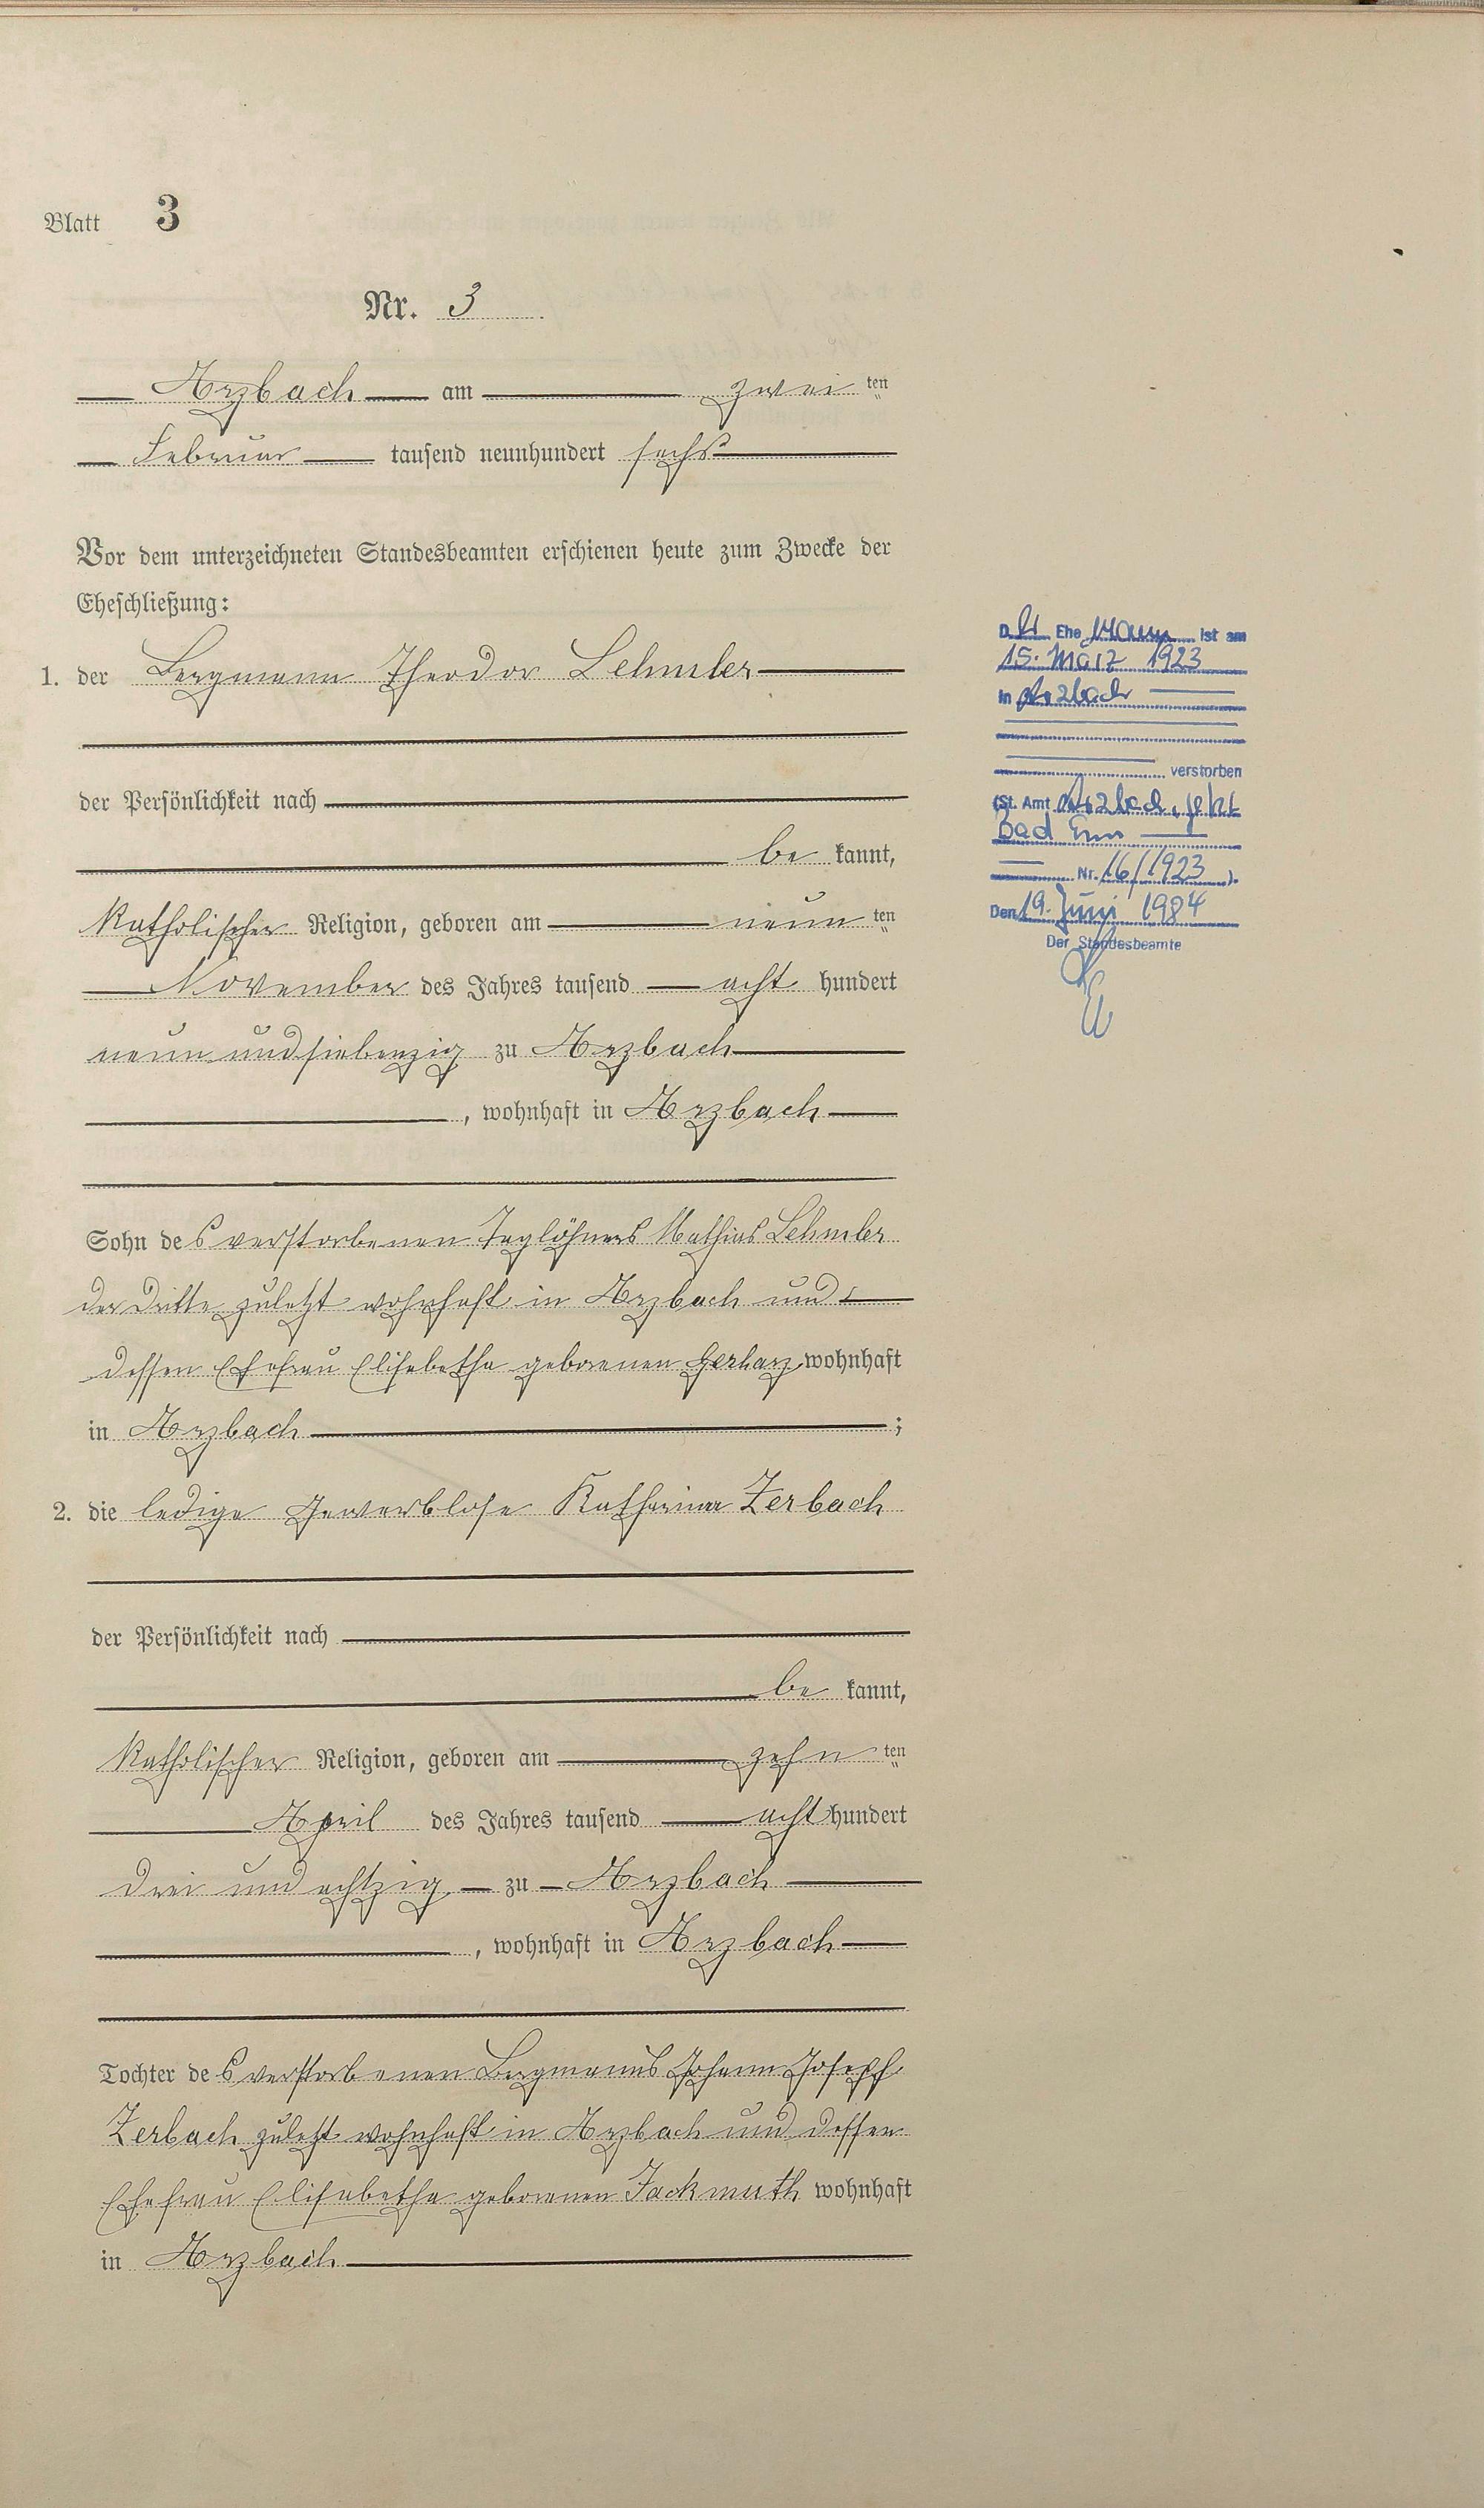 Blatt 3
Nr. 3
Arzbach am zwei ten
Februar tausend neunhundert sechs
Vor dem unterzeichneten Standesbeamten erschienen heute zum Zwecke der
Eheschließung:
1. der Bergmann Theodor Lehmler
der Persönlichkeit nach
be kannt,
katholischer Religion, geboren am neun ten
November des Jahres tausend acht hundert
neun und siebenzig zu Arzbach
, wohnhaft in Arzbach
Sohn des verstorbenen Taglöhners Mathias Lehmler
der Dritte zuletzt wohnhaft in Arzbach und
dessen Ehefrau Elisabetha geborenen Gerharz wohnhaft
in Arzbach ;
2. die ledige Gewerblose Katharina Zerbach
der Persönlichkeit nach
be kannt,
katholischer Religion, geboren am zehn ten
April des Jahres tausend acht hundert
drei und achtzig zu Arzbach
, wohnhaft in Arzbach
Tochter des verstorbenen Bergmanns Johann Joseph
Zerbach zuletzt wohnhaft in Arzbach und dessen
Ehefrau Elisabetha geborenen Jackmuth wohnhaft
in Arzbach
D. er Ehe mann ist am
15. März 1923
in Arzbach
verstorben
(St. Amt Arzbach, jetzt
Bad Ems
Nr. 16/1923 ).
Den 19. Juni 1984
Der Standesbeamte